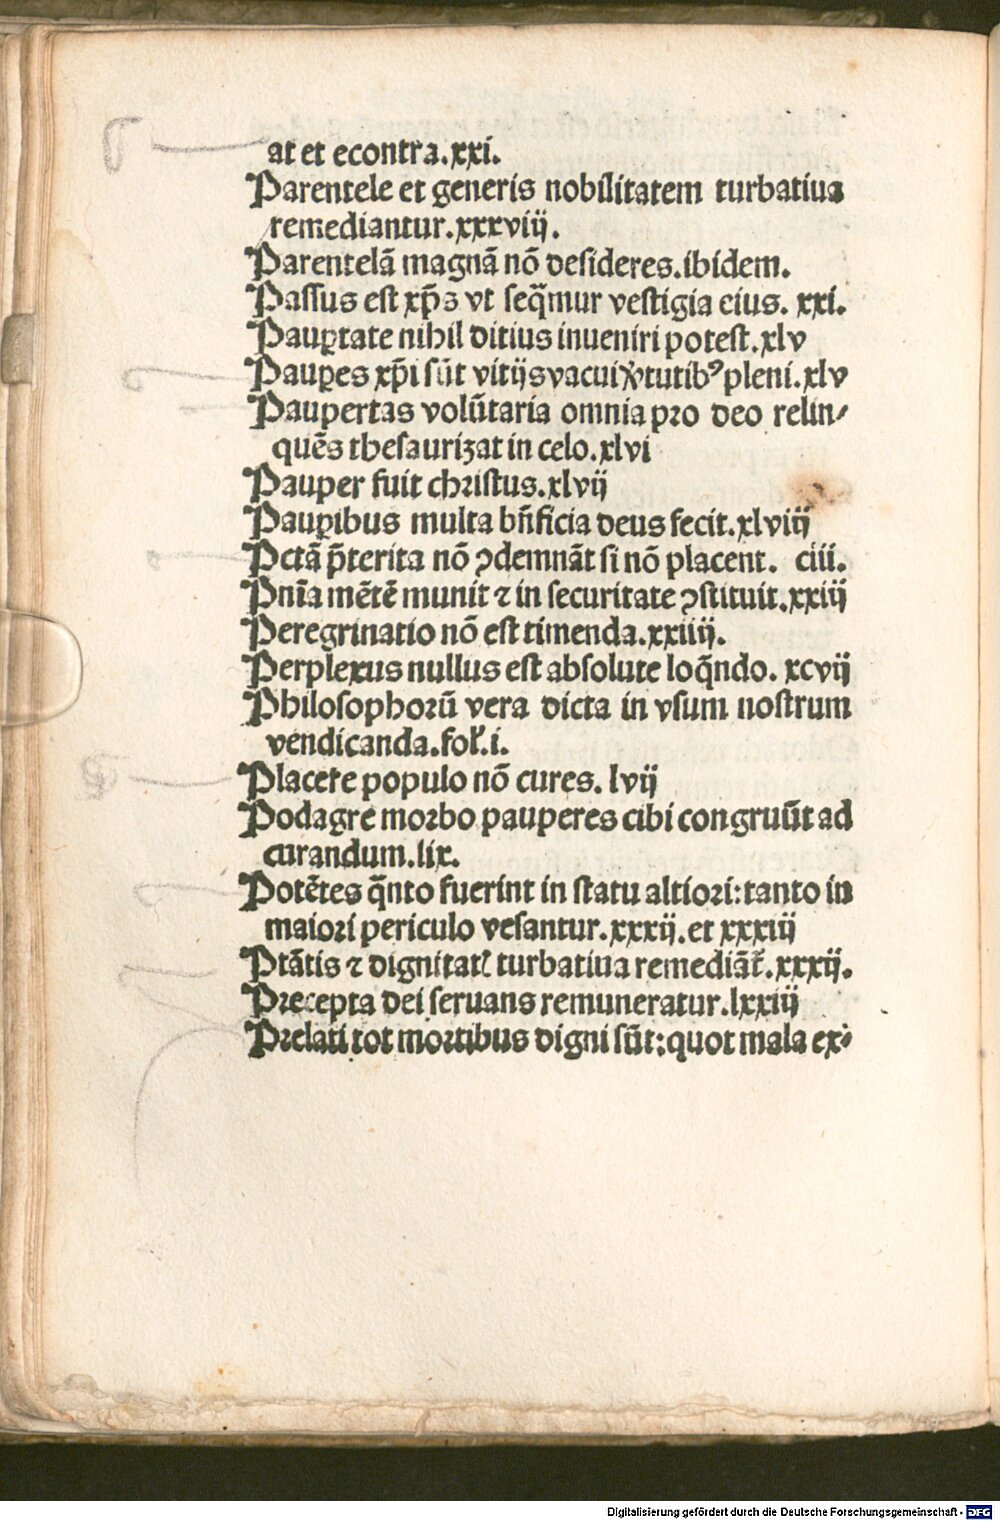 at et econtra.xxi.
Parentele et generis nobilitatem turbatiua
remediantur.xxxviij.
Parentelā magnā nō desideres.ibidem.
Passus est xp̄s vt seq̄mur vestigia eius. xxi.
Paup̱tate nihil ditius inueniri potest.xlv
Paup̱es xp̄i sūt vitijs vacui v̓tutibꝰ pleni.xlv
Paupertas volūtaria omnia pro deo relin⸗
quēs thesaurizat in celo.xlvi
Pauper fuit christus.xlvij
Paup̱ibus multa bn̄ficia deus fecit.xlviij
Pctā p̄terita nō ꝯdemnāt si nō placent. ciii.
Pnīa mētē munit ⁊ in securitate ꝯstituit.xxiij
Peregrinatio nō est timenda.xxiiij.
Perplexus nullus est absolute loq̄ndo. xcvij
Philosophorū vera dicta in vsum nostrum
vendicanda.fol̓.i.
Placere populo nō cures. lvij
Podagre morbo pauperes cibi congruūt ad
curandum.lix.
Potētes q̄nto fuerint in statu altiori:tanto in
maiori periculo vesantur.xxxij.et xxxiij
Ptātis ⁊ dignitatꝭ turbatiua remediāt̓.xxxij.
Precepta dei seruans remuneratur.lxxiij
Prelati tot mortibus digni sūt:quot mala ex⸗
Digitalisierung gefördert durch die Deutsche Forschungsgemeinschaft - DFG